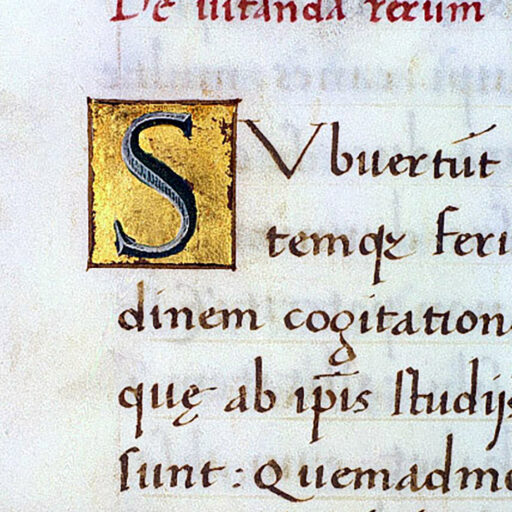 De uitanda rerum
SVbuertūt
temqꝫ seri
dinem cogitation
quę ab ip̄is studijs
sunt : Quemadmo